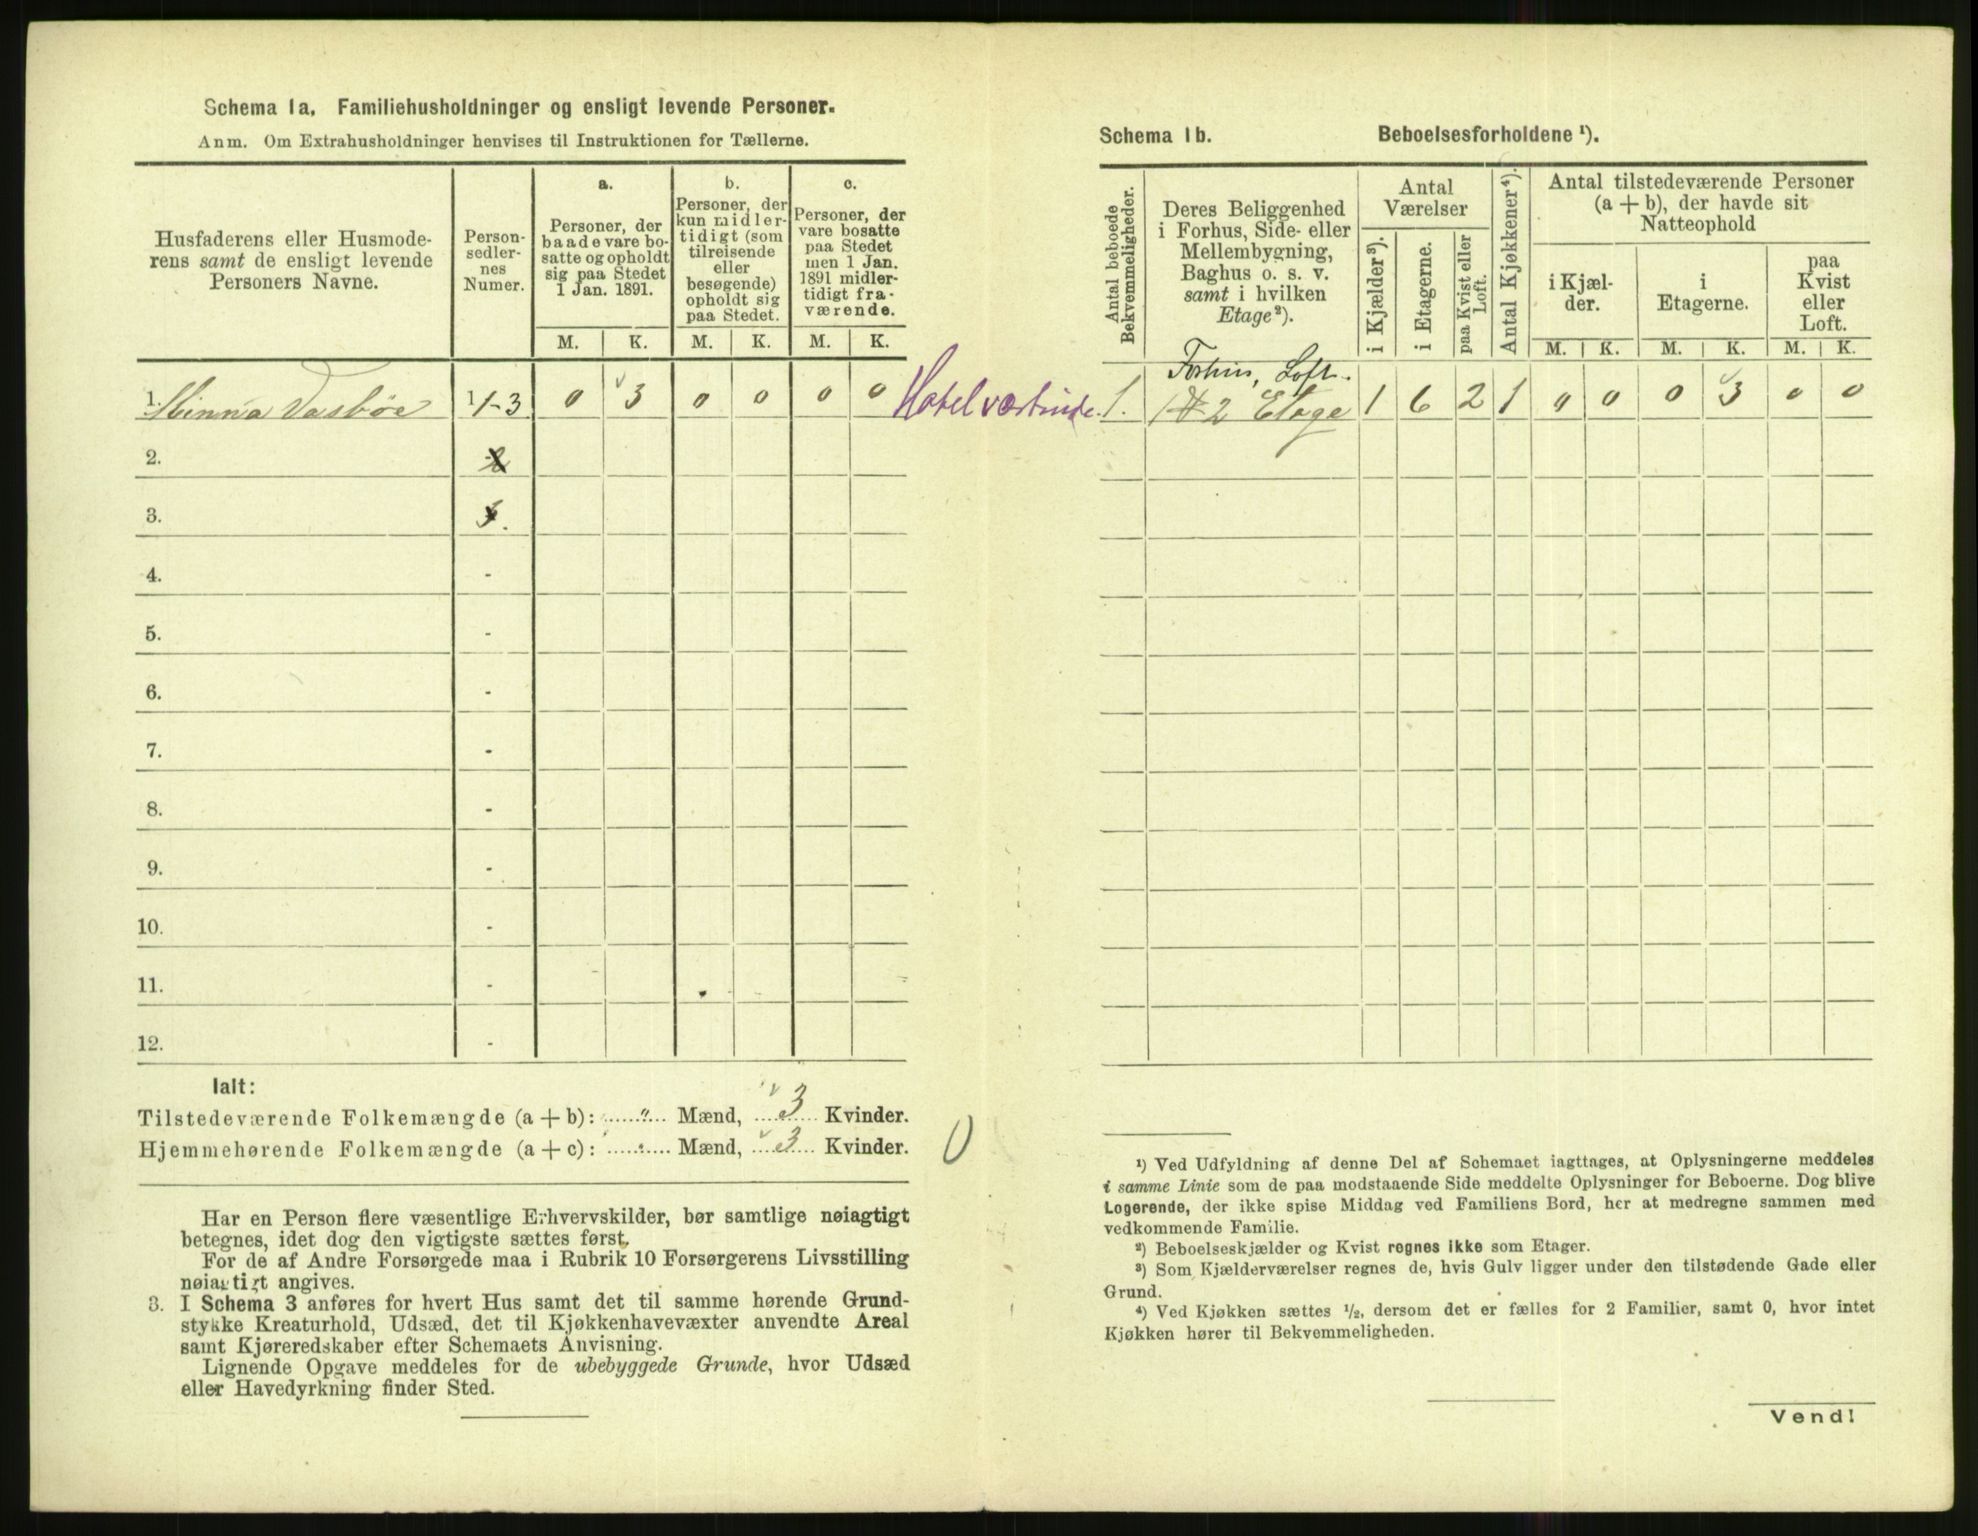 Schema 1a. Familiehusholdninger og ensligt levende Personer.
Anm. Om Extrahusholdninger henvises til Instruktionen for Tællerne.
Husfaderens eller Husmode-
rens samt de ensligt levende
Personers Navne.
Person-
sedler-
nes
Numer.
a.
Personer, der
baade vare bo-
satte og opholdt
sig paa Stedet
1 Jan. 1891.
b.
Personer, der
kun midler-
tidigt (som
tilreisende
eller
besøgende)
opholdt sig
paa Stedet.
c.
Personer, der
vare bosatte
paa Stedet
men 1 Jan.
1891 midler-
tidigt fra-
værende.
M. K. M. K. M. K.
1. Minna Vasbøe 1 1-3 0 3 0 0 0 0 Hotelværtinde
2.
3.
4. -
5. -
6. -
7. -
8. -
9. -
10. -
11. -
12. -
Ialt:
Tilstedeværende Folkemængde (a + b): ...... " ...... Mænd, ...... 3 ...... Kvinder.
Hjemmehørende Folkemængde (a + c): ...... " ...... Mænd, ...... 3 ...... Kvinder.
0
Har en Person flere væsentlige Erhvervskilder, bør samtlige nøiagtigt
betegnes, idet dog den vigtigste sættes først.
For de af Andre Forsørgede maa i Rubrik 10 Forsørgerens Livsstilling
nøiagtigt angives.
3. I Schema 3 anføres for hvert Hus samt det til samme hørende Grund-
stykke Kreaturhold, Udsæd, det til Kjøkkenhavevæxter anvendte Areal
samt Kjøreredskaber efter Schemaets Anvisning.
Lignende Opgave meddeles for de ubebyggede Grunde, hvor Udsæd
eller Havedyrkning finder Sted.
Schema 1b. Beboelsesforholdene ¹).
Antal beboede
Bekvemmeligheder.
Deres Beliggenhed
i Forhus, Side- eller
Mellembygning,
Baghus o. s. v.
samt i hvilken
Etage²).
Antal
Værelser
i Kjælder³).
i Etagerne.
paa Kvist eller
Loft.
Antal Kjøkkener⁴).
Antal tilstedeværende Personer
(a + b), der havde sit
Natteophold
i Kjæl-
der.
i
Etagerne.
paa
Kvist
eller
Loft.
M. K. M. K. M. K.
Forhus, Loft.
1. 1 & 2 Etage 1 6 2 1 0 0 0 3 0 0
¹) Ved Udfyldning af denne Del af Schemaet iagttages, at Oplysningerne meddeles
i samme Linie som de paa modstaaende Side meddelte Oplysninger for Beboerne. Dog blive
Logerende, der ikke spise Middag ved Familiens Bord, her at medregne sammen med
vedkommende Familie.
²) Beboelseskjælder og Kvist regnes ikke som Etager.
³) Som Kjælderværelser regnes de, hvis Gulv ligger under den tilstødende Gade eller
Grund.
⁴) Ved Kjøkken sættes ½, dersom det er fælles for 2 Familier, samt 0, hvor intet
Kjøkken hører til Bekvemmeligheden.
Vend!